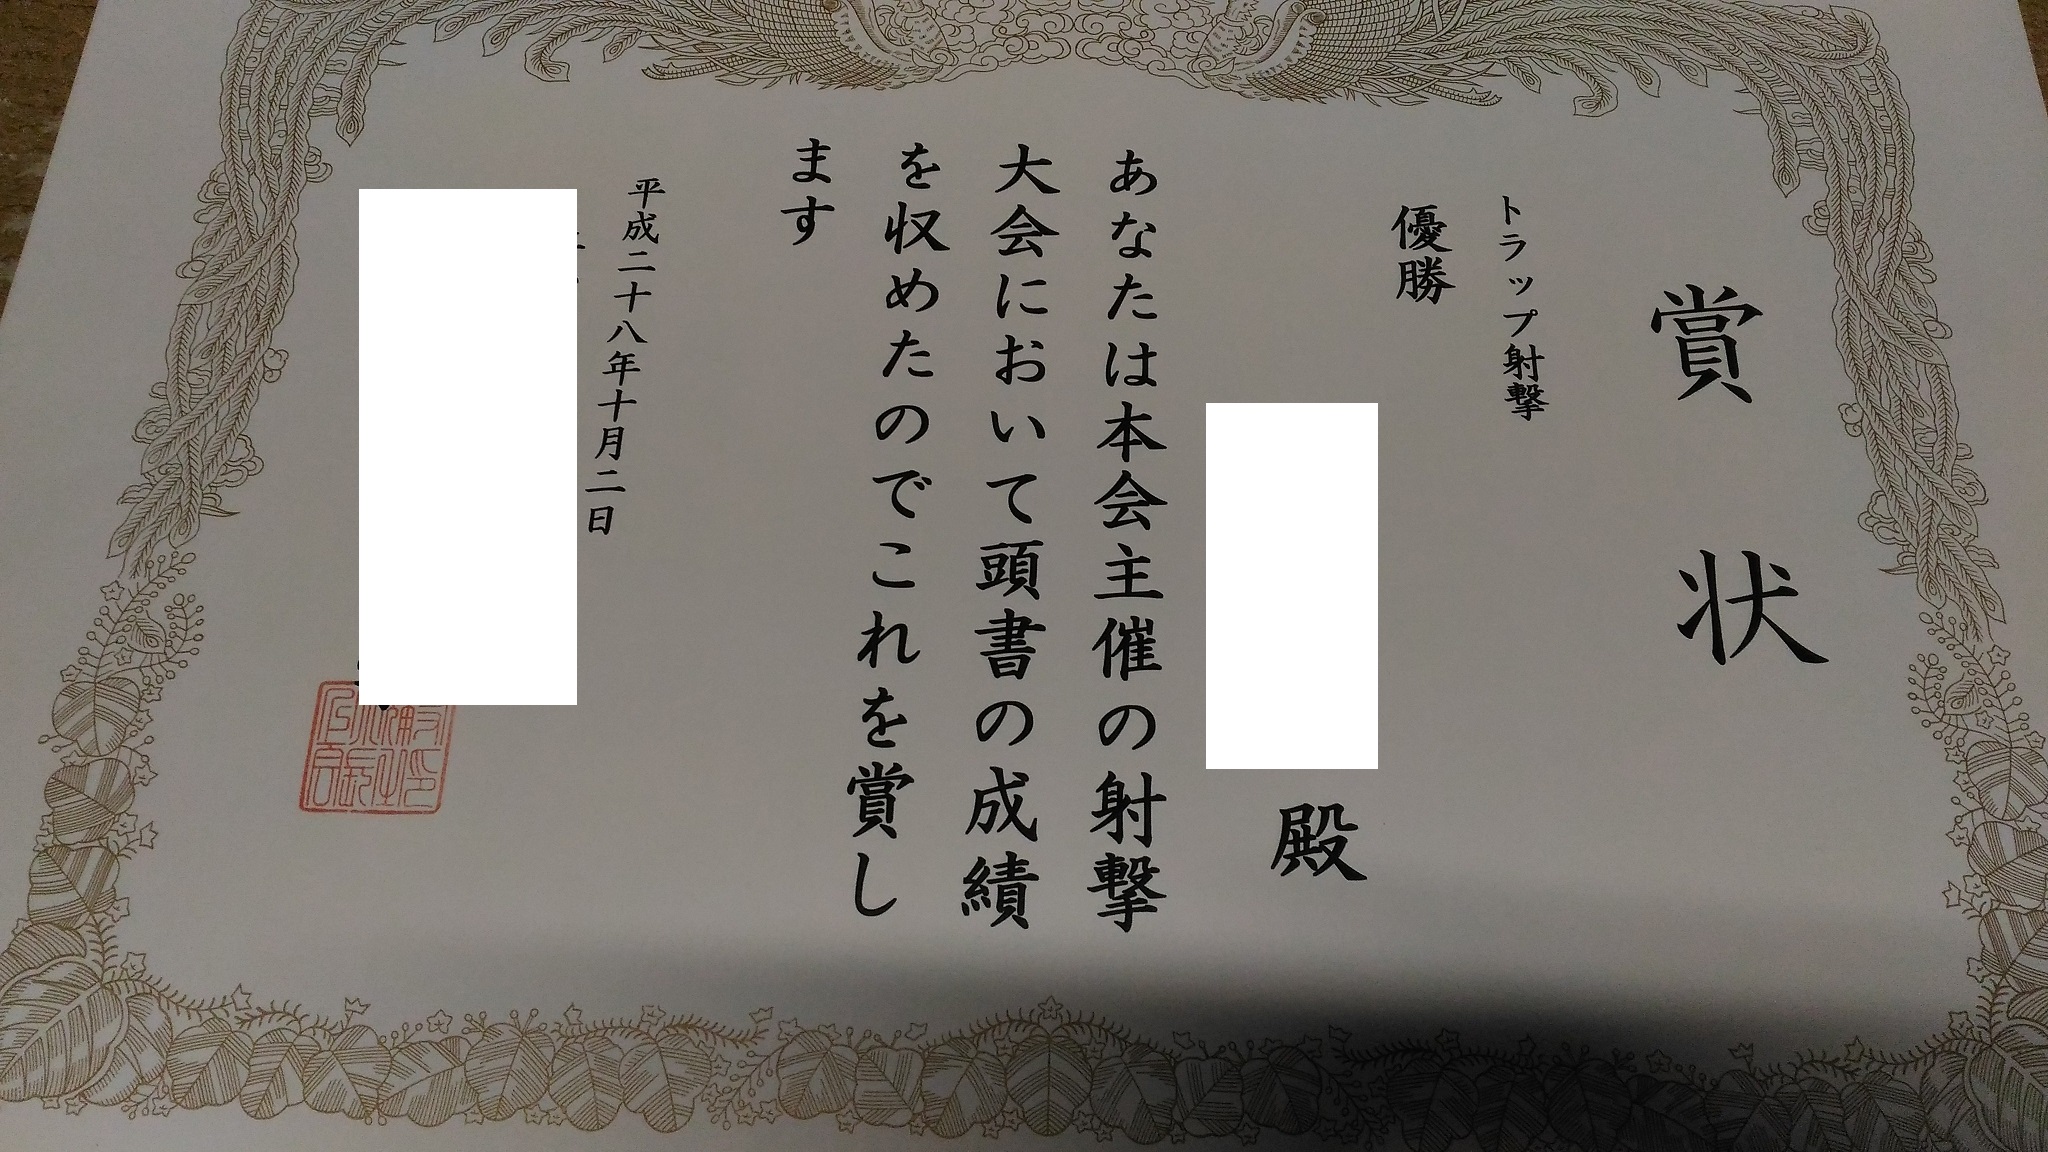 賞状
トラップ射撃
優勝
殿
あなたは本会主催の射撃
大会において頭書の成績
を収めたのでこれを賞し
ます
平成二十八年十月二日